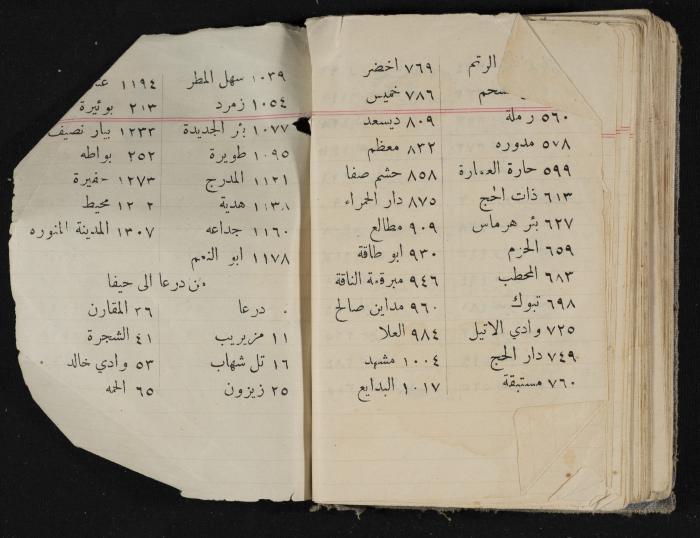 الرتم
٥٦٠ رملة
٥٧٨ مدوره
٥٩٩ حارة العمارة
٦١٣ ذات الحج
٦٢٧ بئر هرماس
٦٥٩ الحزم
٦٨٣ المحطب
٦٩٨ تبوك
٧٢٥ وادي الاتيل
٧٤٩ دار الحج
٧٦٠ مستبقة
٧٦٩ اخضر
٧٨٦ خميس
٨٠٩ ديسعد
٨٣٢ معظم
٨٥٨ حشم صفا
٨٧٥ دار الحمراء
٩٠٩ مطالع
٩٣٠ ابو طاقة
٩٤٦ مبرقة الناقة
٩٦٠ مداين صالح
٩٨٤ العلا
١٠٠٤ مشهد
١٠١٧ البدايع
١٠٣٩ سهل المطر
١٠٥٤ زمرد
١٠٧٧ بئر الجديدة
١٠٩٥ طويرة
١١٢١ المدرج
١١٣٨ هدية
١١٦٠ جداعه
١١٧٨ ابو النعم
١١٩٤
٢١٣ بوئيرة
١٢٣٣ بيار نصيف
٢٥٢ بواطه
١٢٧٣ حفيرة
١٢ ٢ محيط
١٣٠٧ المدينة المنوره
من درعا الى حيفا
٠ درعا
١١ مزيريب
١٦ تل شهاب
٢٥ زيزون
٣٦ المقارن
٤١ الشجرة
٥٣ وادي خالد
٦٥ الحمه